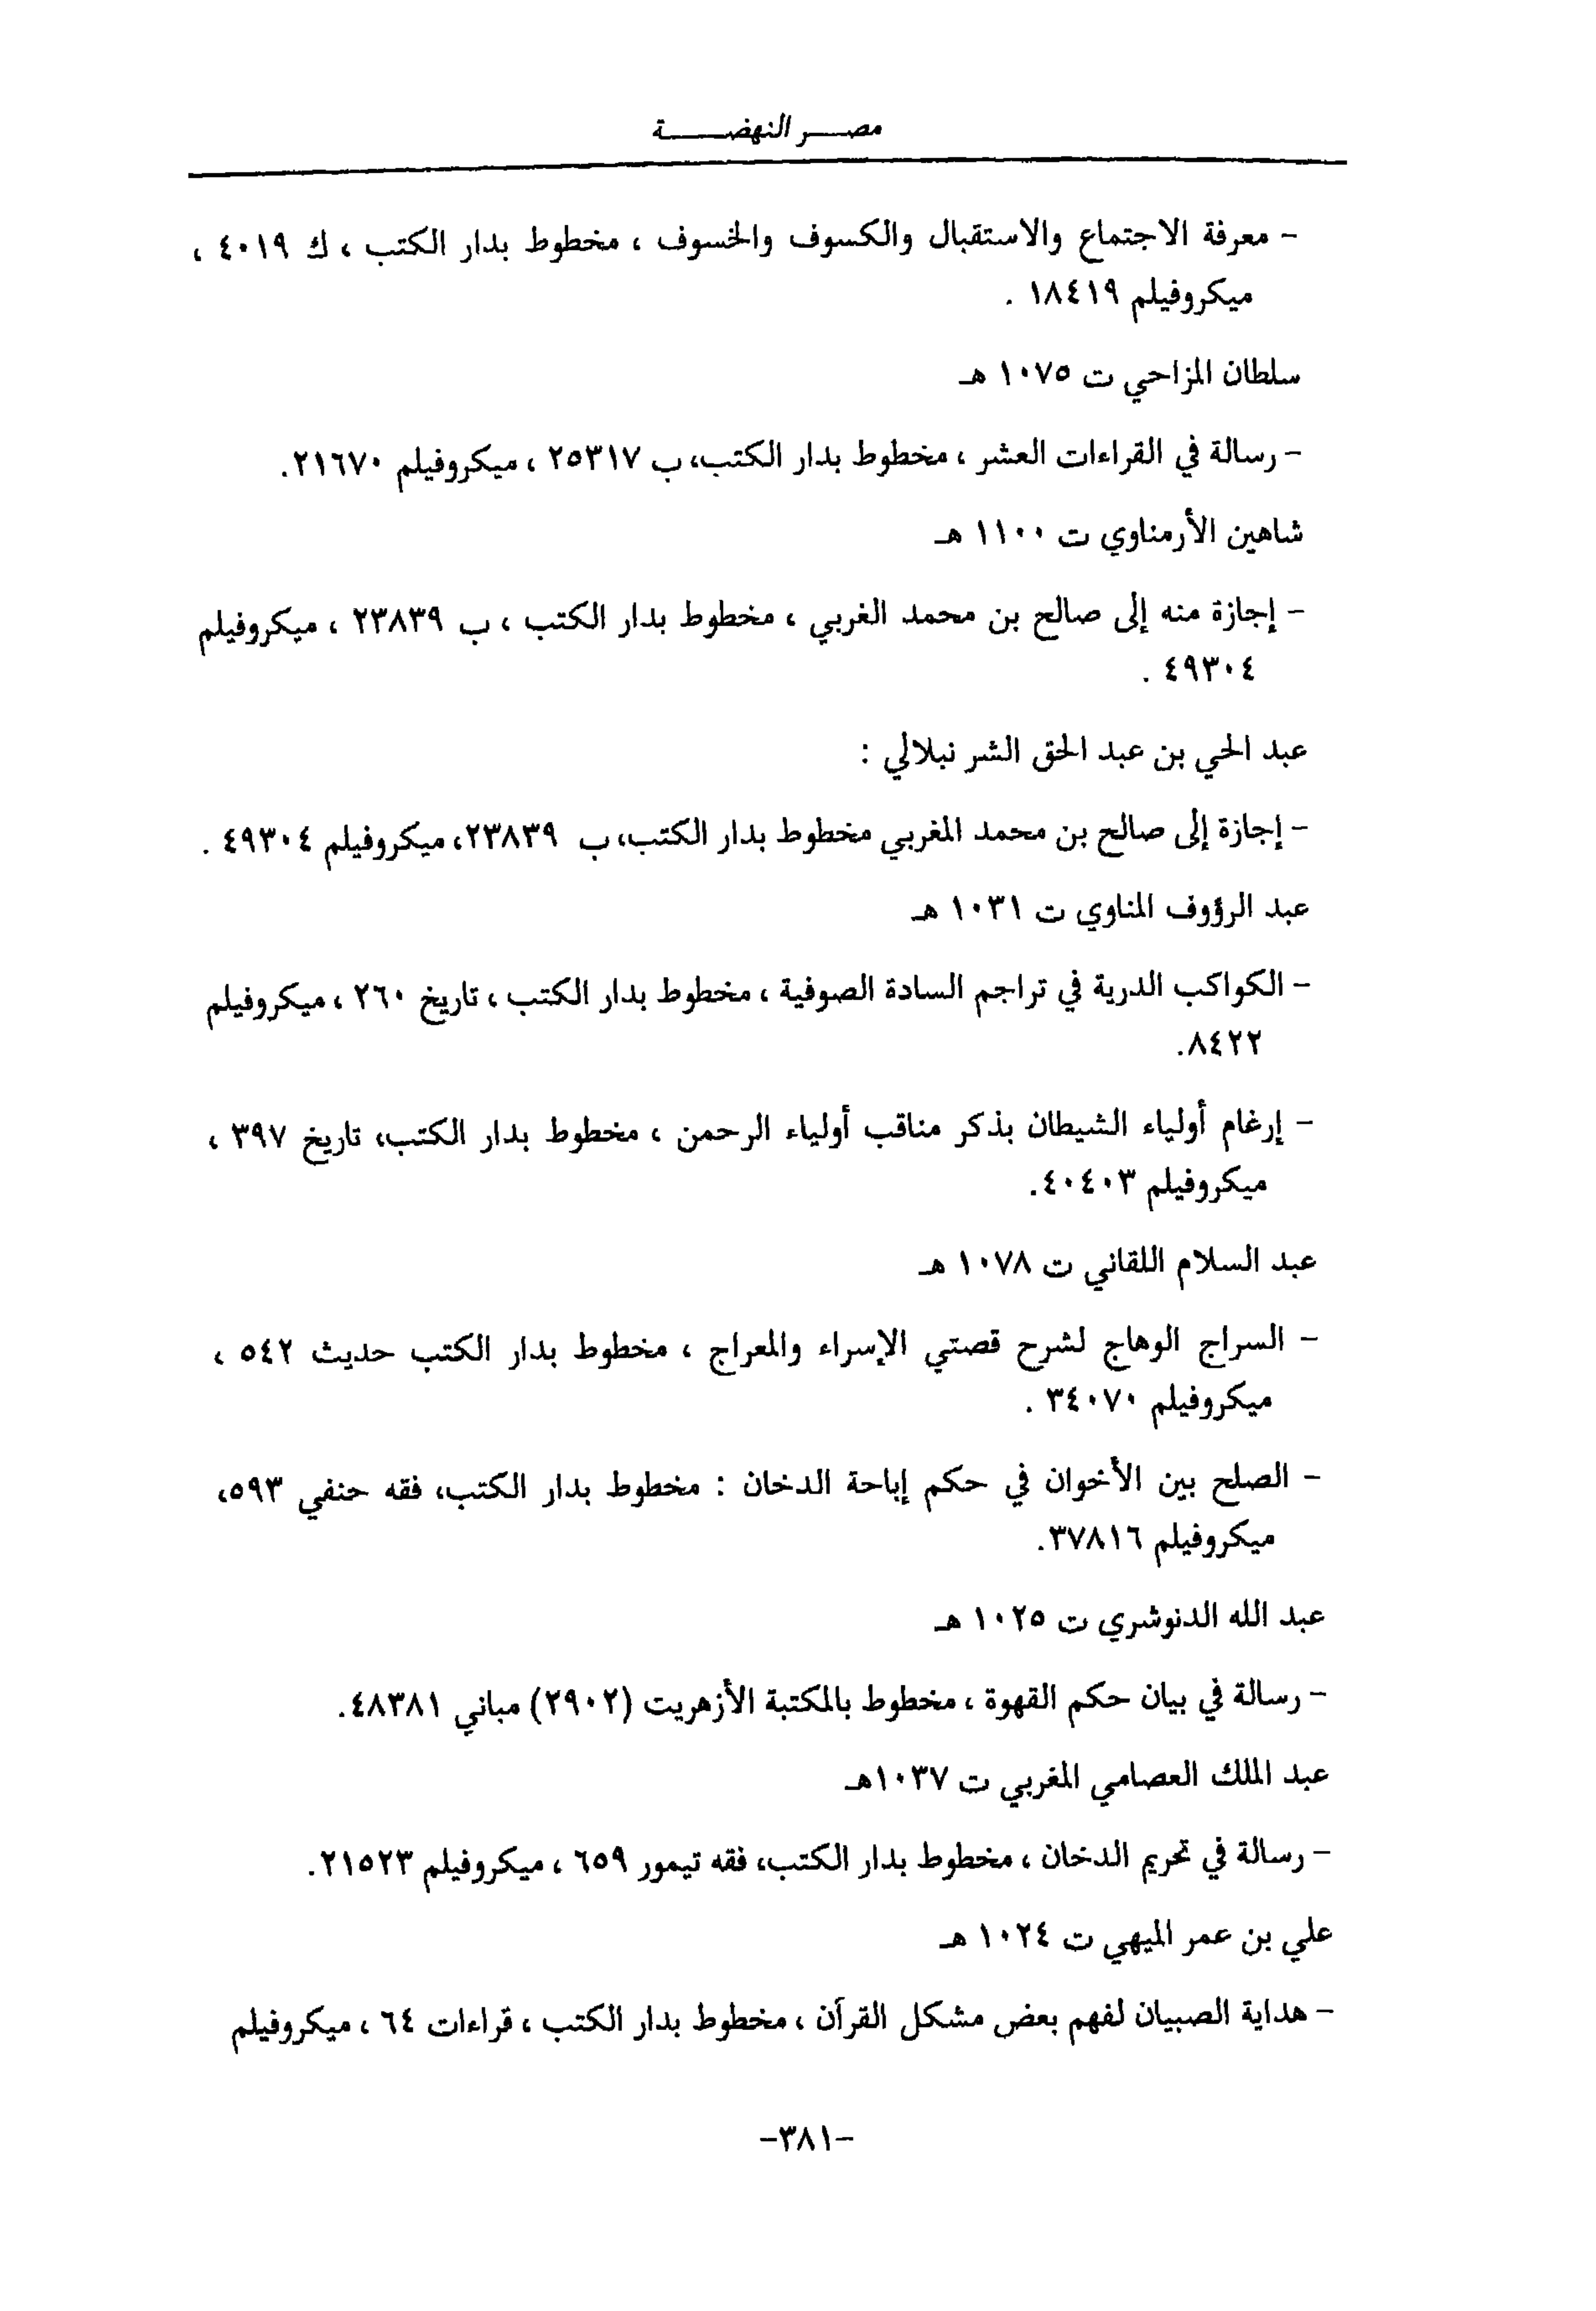 مصر النهضة
- معرفة الاجتماع والاستقبال والكسوف والخسوف ، مخطوط بدار الكتب ، ك ٤٠١٩ ،
ميكروفيلم ١٨٤١٩ .
سلطان المزاحي ت ١٠٧٥ هـ
- رسالة في القراءات العشر ، مخطوط بدار الكتب، ب ٢٥٣١٧ ، ميكروفيلم ٢١٦٧٠.
شاهين الأرمناوي ت ١١٠٠ هـ
- إجازة منه إلى صالح بن محمد الغربي ، مخطوط بدار الكتب ، ب ٢٣٨٣٩ ، ميكروفيلم
٤٩٣٠٤ .
عبد الحي بن عبد الحق الشر نبلالي :
- إجازة إلى صالح بن محمد المغربي مخطوط بدار الكتب، ب ٢٣٨٣٩، ميكروفيلم ٤٩٣٠٤ .
عبد الرؤوف المناوي ت ١٠٣١ هـ
- الكواكب الدرية في تراجم السادة الصوفية ، مخطوط بدار الكتب ، تاريخ ٢٦٠ ، ميكروفيلم
٨٤٢٢.
- إرغام أولياء الشيطان بذكر مناقب أولياء الرحمن ، مخطوط بدار الكتب، تاريخ ٣٩٧ ،
ميكروفيلم ٤٠٤٠٣.
عبد السلام اللقاني ت ١٠٧٨ هـ
- السراج الوهاج لشرح قصتي الإسراء والمعراج ، مخطوط بدار الكتب حديث ٥٤٢ ،
ميكروفيلم ٣٤٠٧٠ .
- الصلح بين الأخوان في حكم إباحة الدخان : مخطوط بدار الكتب، فقه حنفي ٥٩٣،
ميكروفيلم ٣٧٨١٦.
عبد الله الدنوشري ت ١٠٢٥ هـ
- رسالة في بيان حكم القهوة ، مخطوط بالمكتبة الأزهريت (٢٩٠٢) مباني ٤٨٣٨١.
عبد الملك العصامي المغربي ت ١٠٣٧هـ
- رسالة في تحريم الدخان ، مخطوط بدار الكتب، فقه تيمور ٦٥٩ ، ميكروفيلم ٢١٥٢٣.
علي بن عمر الميهي ت ١٠٢٤ هـ
- هداية الصبيان لفهم بعض مشكل القرآن ، مخطوط بدار الكتب ، قراءات ٦٤ ، ميكروفيلم
-٣٨١-